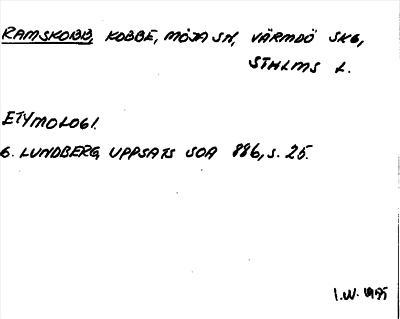 RAMSKOBB, KOBBE, MÖJA SN, VÄRMDÖ SKG,
STHLMS L.
ETYMOLOGI.
G. LUNDBERG, UPPSATS SOA 886, S. 25.
I.W. 1995